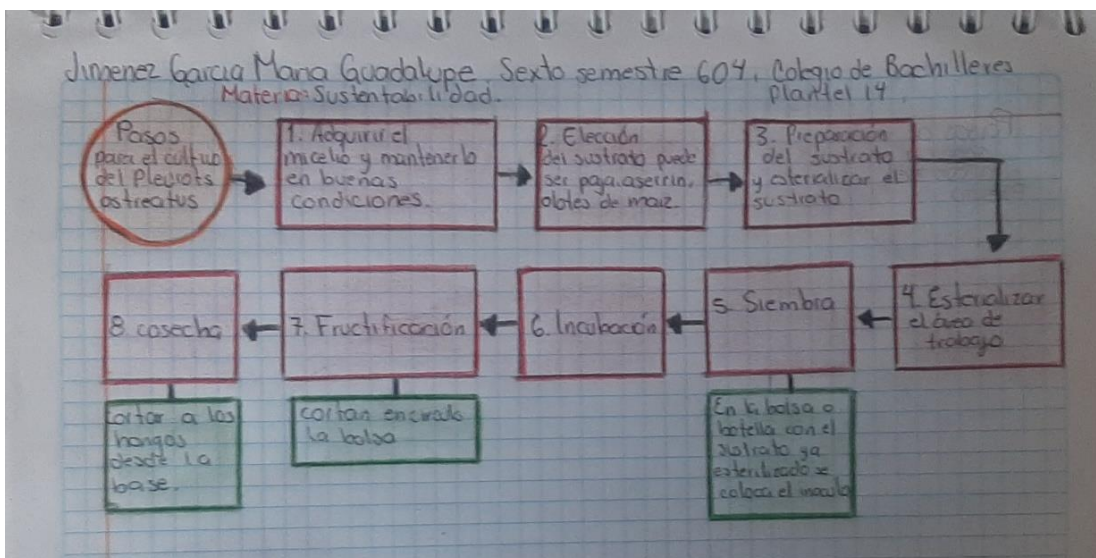 Jimenez Garcia Maria Guadalupe. Sexto semestre 604. Colegio de Bachilleres
Materia: Sustentabilidad. Plantel 14
Pasos
para el cultivo
del Pleurots
ostreatus
1. Adquirir el
micelio y mantenerlo
en buenas
condiciones.
2. Elección
del sustrato puede
ser paja, aserrin,
olotes de maiz
3. Preparación
del sustrato
y esterializar el
sustrato
4. Esterializar
el área de
trabajo
5. Siembra
6. Incubación
7. Fructificación
8. cosecha
En la bolsa o
botella con el
sustrato ya
esterilizado se
coloca el inoculo
cortan
la bolsa
Cortar a los
hongos
desde la
base.